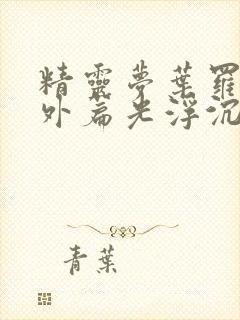 精靈夢葉羅
外扁光浮沉
青葉